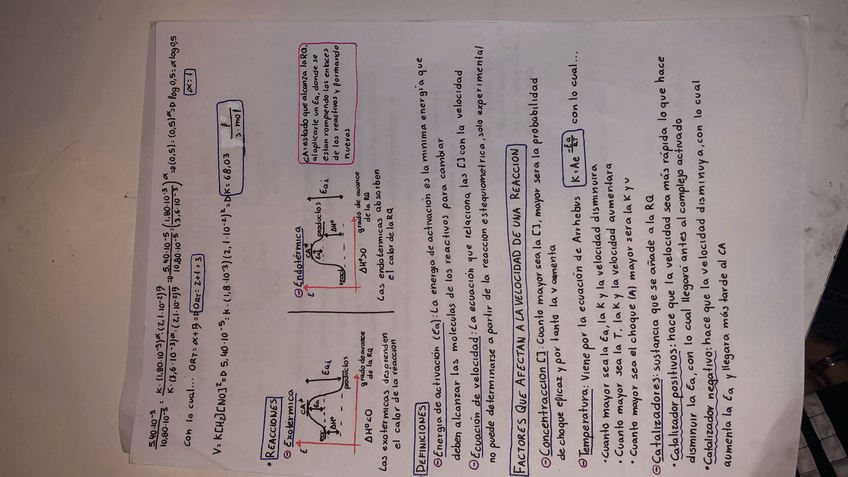 5.40·10⁻⁵ / 10.80·10⁻⁵ = K·(1,80·10⁻³)α·(2,1·10⁻²)β / K·(3,6·10⁻³)α·(2,1·10⁻²)β => 5.40·10⁻⁵ / 10.80·10⁻⁵ = (1,80·10⁻³ / 3,6·10⁻³)α => (0,5) = (0,5)α => log 0,5 = α log 0,5
α = 1
Con lo cual... ORT = α + β => ORT = 2+1 = 3
V = K[H₂][NO]² => 5,40·10⁻⁵ = K·(1,8·10⁻³)(2,1·10⁻²)² => K = 68,03
• REACCIONES
Exotérmica
E
CA*
Ea
Eai
react
productos
ΔH
grado de avance
de la RQ
ΔHº<0
Las exotermicas desprenden
el calor de la reaccion
Endotérmica
E
CA*
Ea
productos
Eai
react
ΔHº
grado de avance
de la RQ
ΔHº>0
Las endotermicas absorben
el calor de la RQ
CA: estado que alcanza la RQ,
al aplicarle un Ea, donde se
estan rompendo los enlaces
de los reactivos y formando
nuevos
DEFINICIONES
Energia de activación (Ea): La energia de activación es la minima energia que
deben alcanzar las moleculas de los reactivos para cambar
Ecuación de velocidad: La ecuación que relaciona las [] con la velocidad
no puede determinarse a partir de la reaccion estequiometrica, solo experimental
FACTORES QUE AFECTAN A LA VELOCIDAD DE UNA REACCION
Concentraccion []: Cuanto mayor sea la [], mayor sera la probabilidad
de choque eficaz y por tanto la v aumenta
Temperatura: Viene por la ecuación de Arrhebus K=Ae^(-Ea/RT) con lo cual...
• Cuanto mayor sea la Ea, la K y la velocidad disminuira
• Cuanto mayor sea la T, la K y la velocidad aumentara
• Cuanto mayor sea el choque (A) mayor sera la K y v
Catalizadores: sustancia que se añade a la RQ
• Catalizador positivos: hace que la velocidad sea más rápida lo que hace
disminuir la Ea, con lo cual llegará antes al complejo activado
• Catalizador negativo: hace que la velocidad disminuya, con lo cual
aumenta la Ea y llegara más tarde al CA